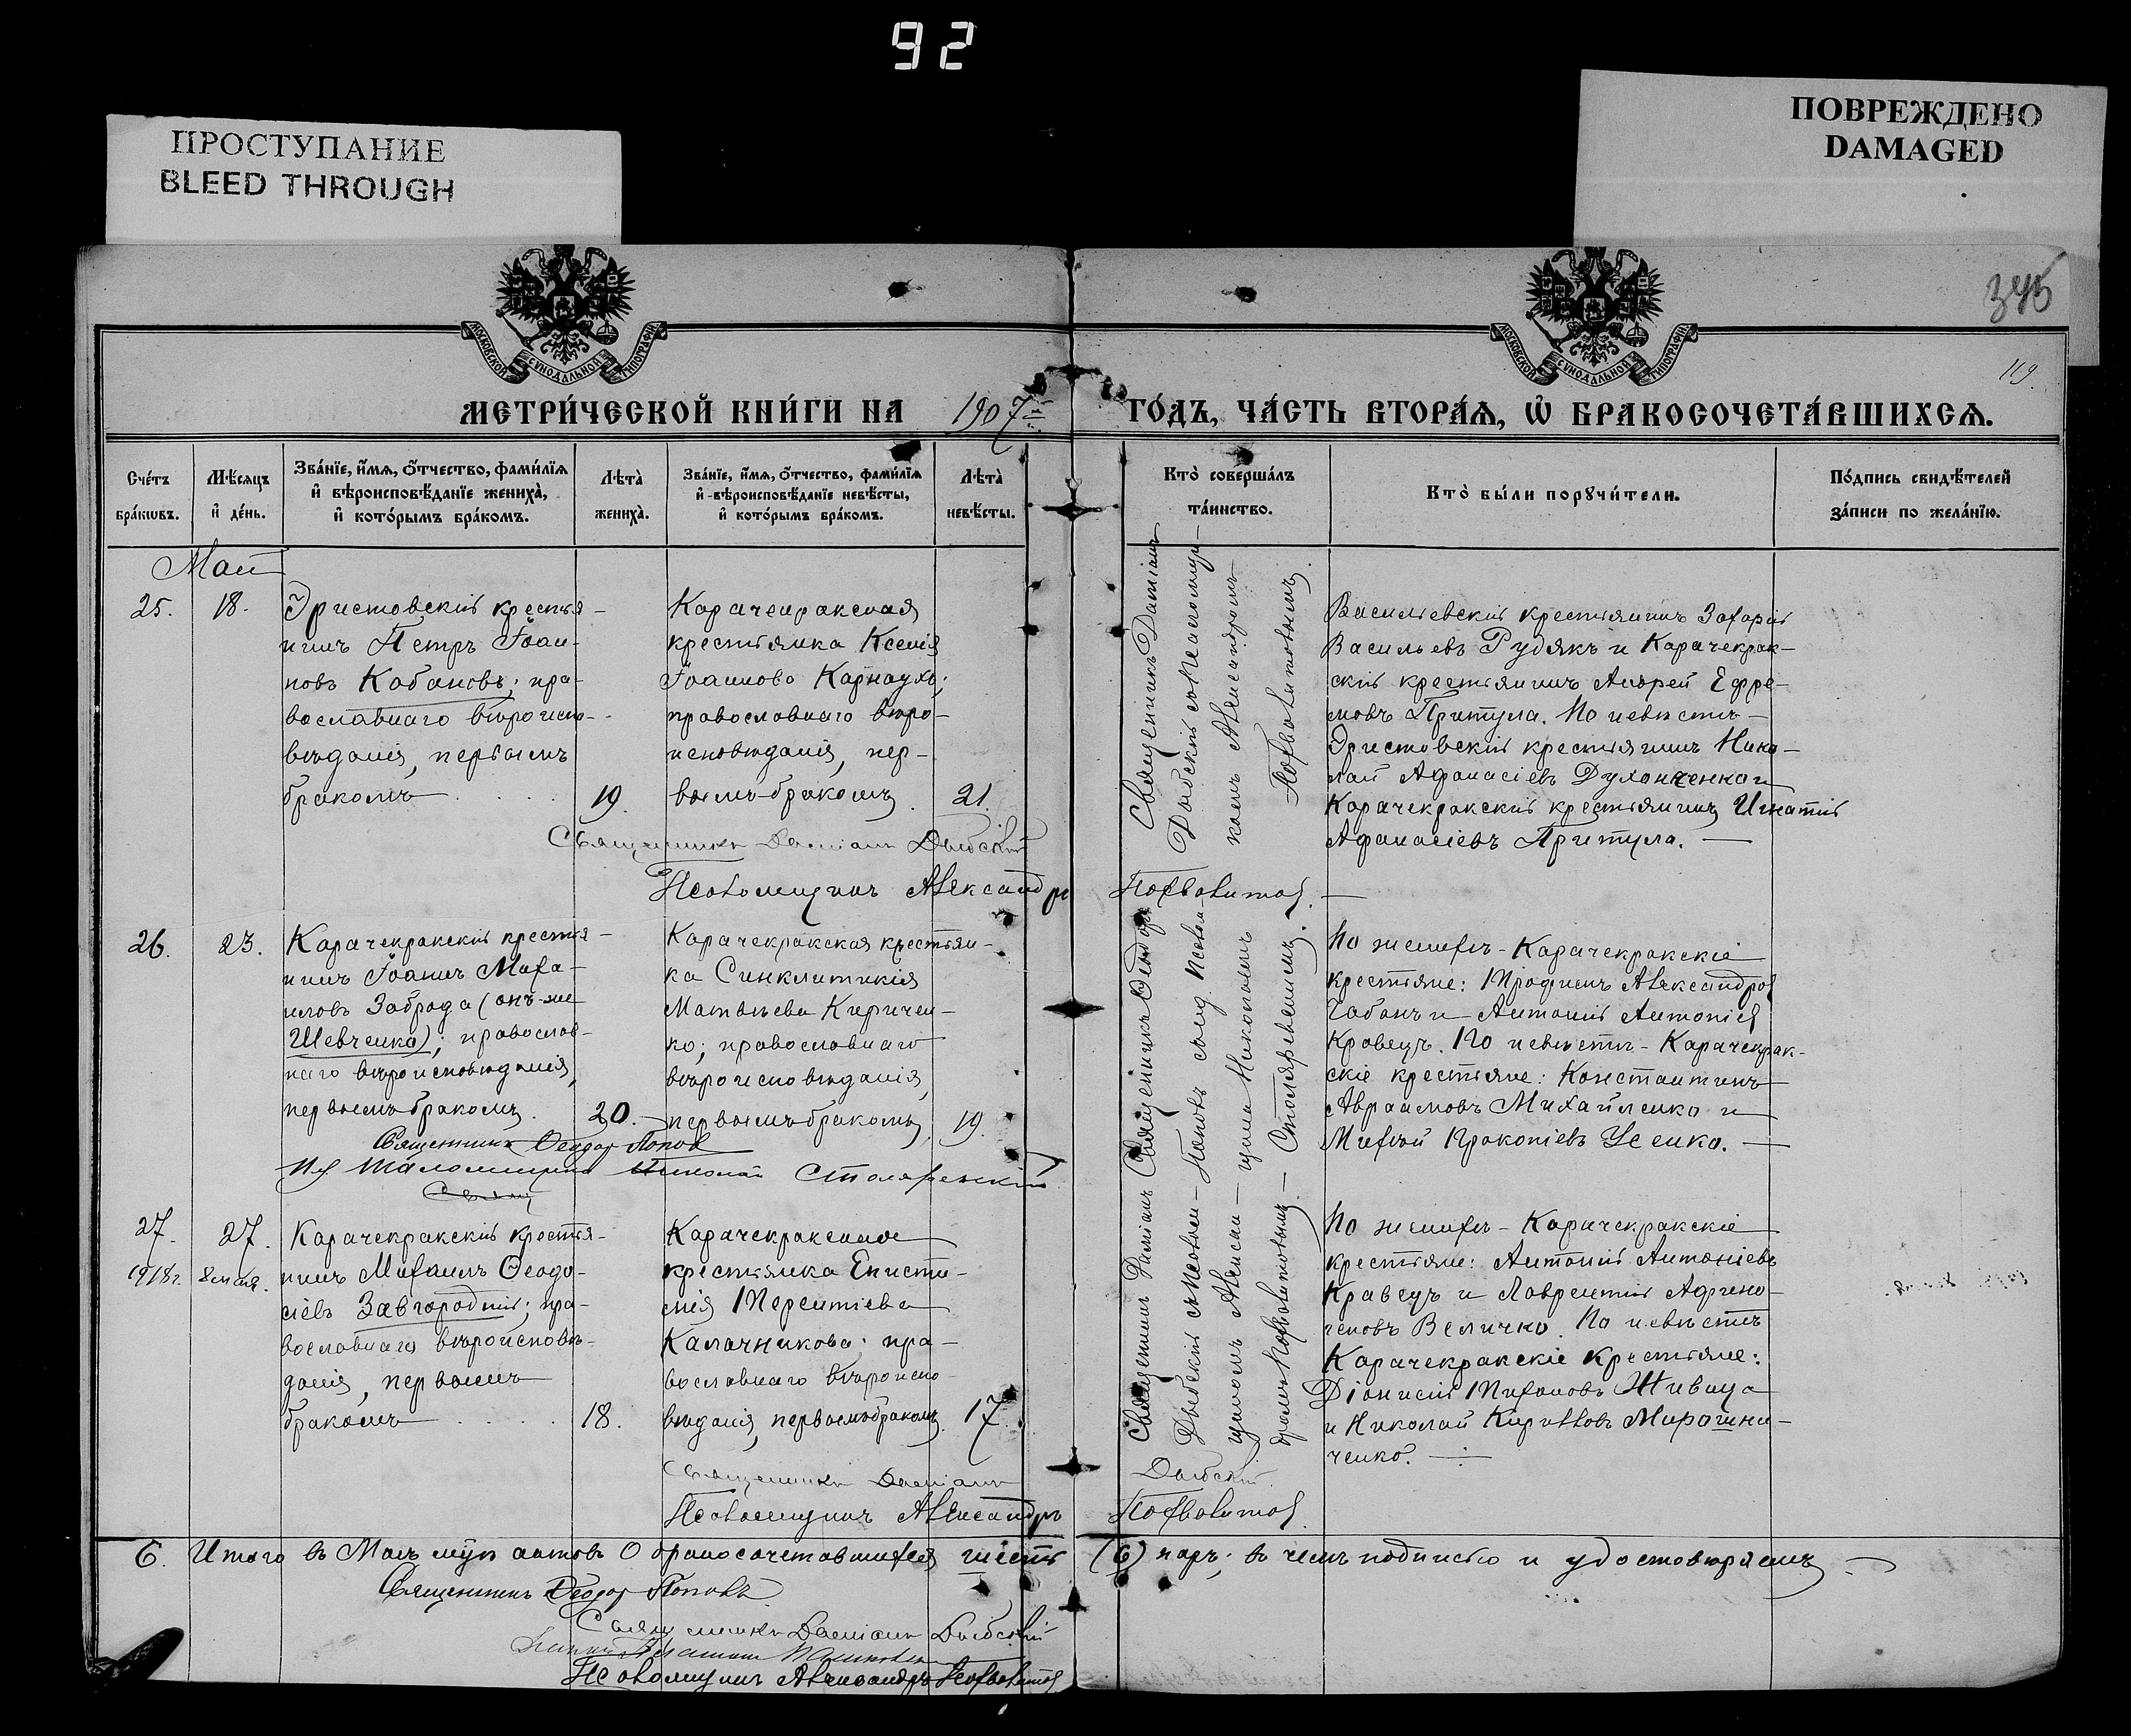 92
ПРОСТУПАНИЕ
BLEED THROUGH
ПОВРЕЖДЕНО
DAMAGED
345
119.
МОСКОВСКОЙ СѴНОДАЛЬНОЙ ТИПОГРАФІИ
МОСКОВСКОЙ СѴНОДАЛЬНОЙ ТИПОГРАФІИ
МЕТРИ́ЧЕСКОЙ КНИ́ГИ НА 1907 ГО́ДЪ, ЧА́СТЬ ВТОРА́Я, Ѡ҆ БРАКОСОЧЕТА́ВШИХСЯ.
Сче́тъ бра́кѡвъ.
Мѣ́сяцъ и҆ де́нь.
Зва́нїе, и҆́мя, ѻ҆́тчество, фами́лїя и҆ вѣроисповѣ́данїе жениха̀, и҆ кото́рымъ бра́комъ.
Лѣ́та̀ жениха̀.
Зва́нїе, и҆́мя, ѻ҆́тчество, фами́лїя и҆ вѣроисповѣ́данїе невѣ́сты, и҆ кото́рымъ бра́комъ.
Лѣ́та̀ невѣ́сты.
Кто̀ соверша́лъ та́инство.
Кто̀ бы́ли порꙋчи́тели.
По́дпись свидѣ́телей за́писи по жела́нїю.
Май
25.
18.
Эристовскій крестья-
нинъ Петръ Іоан-
новъ Кабановъ; пра-
вославнаго вѣроиспо-
вѣданія, первымъ
бракомъ
19.
Карачекракская
крестьянка Ксенія
Іоаннова Карнаухъ;
православнаго вѣро-
исповѣданія, пер-
вымъ бракомъ.
21.
Священникъ Даміанъ
Дыбскій съ псаломщи-
комъ Александромъ
Похвалитовымъ.
Васильевскій крестьянинъ Захарій
Васильевъ Рудякъ и Карачекрак-
скій крестьянинъ Андрей Ефре-
мовъ Притула. По невѣстѣ
Эристовскій крестьянинъ Нико-
лай Афанасіевъ Духонченко и
Карачекракскій крестьянинъ Игнатій
Афанасіевъ Притула.
Священникъ Даміанъ Дыбскій
Псаломщикъ Александръ Похвалитовъ.
26.
23.
Карачекракскій крестья-
нинъ Іоаннъ Миха-
иловъ Заброда (онъ же
Шевченко); православ-
наго вѣроисповѣданія,
первымъ бракомъ.
20.
Карачекракская крестьян-
ка Синклитикія
Матвѣева Киричен-
ко; православнаго
вѣроисповѣданія,
первымъ бракомъ.
19.
Священникъ Ѳеодоръ
Поповъ
Николаемъ
Столяревскимъ.
По женихѣ - Карачекракскіе
крестьяне: Трофимъ Александровъ
Чабанъ и Антоній Антоніевъ
Кравецъ. По невѣстѣ - Карачекрак-
скіе крестьяне: Константинъ
Авраамовъ Михайленко и
Михаилъ Прокопіевъ Усенко.
Священникъ Ѳеодоръ Поповъ
Николай Столяревскій
27.
1918 г.
27.
8 мая.
Карачекракскій крестья-
нинъ Михаилъ Ѳеодо-
сіевъ Завгородній; пра-
вославнаго вѣроисповѣ-
данія, первымъ
бракомъ
18.
Карачекракская
крестьянка Еписти-
мія Терентіева
Калачникова; пра-
вославнаго вѣроиспо-
вѣданія, первымъ бракомъ.
17.
Священникъ Даміанъ
Дыбскій съ псалом-
щикомъ Алексан-
дромъ Похвалитовымъ.
По женихѣ - Карачекракскіе
крестьяне: Антоній Антоніевъ
Кравецъ и Лаврентій
Величко. По невѣстѣ
Карачекракскіе крестьяне:
Діонисій Тихоновъ Живица
и Николай Кирилловъ Мирошни-
ченко.
Священникъ Даміанъ Дыбскій
Псаломщикъ Александръ Похвалитовъ
6. Итого въ Маѣ м-цѣ актовъ о бракосочетавшихся шесть (6) паръ; въ чемъ подписью и удостовѣряемъ
Священникъ Ѳеодоръ Поповъ
Священникъ Даміанъ Дыбскій
Псаломщикъ Александръ Похвалитовъ